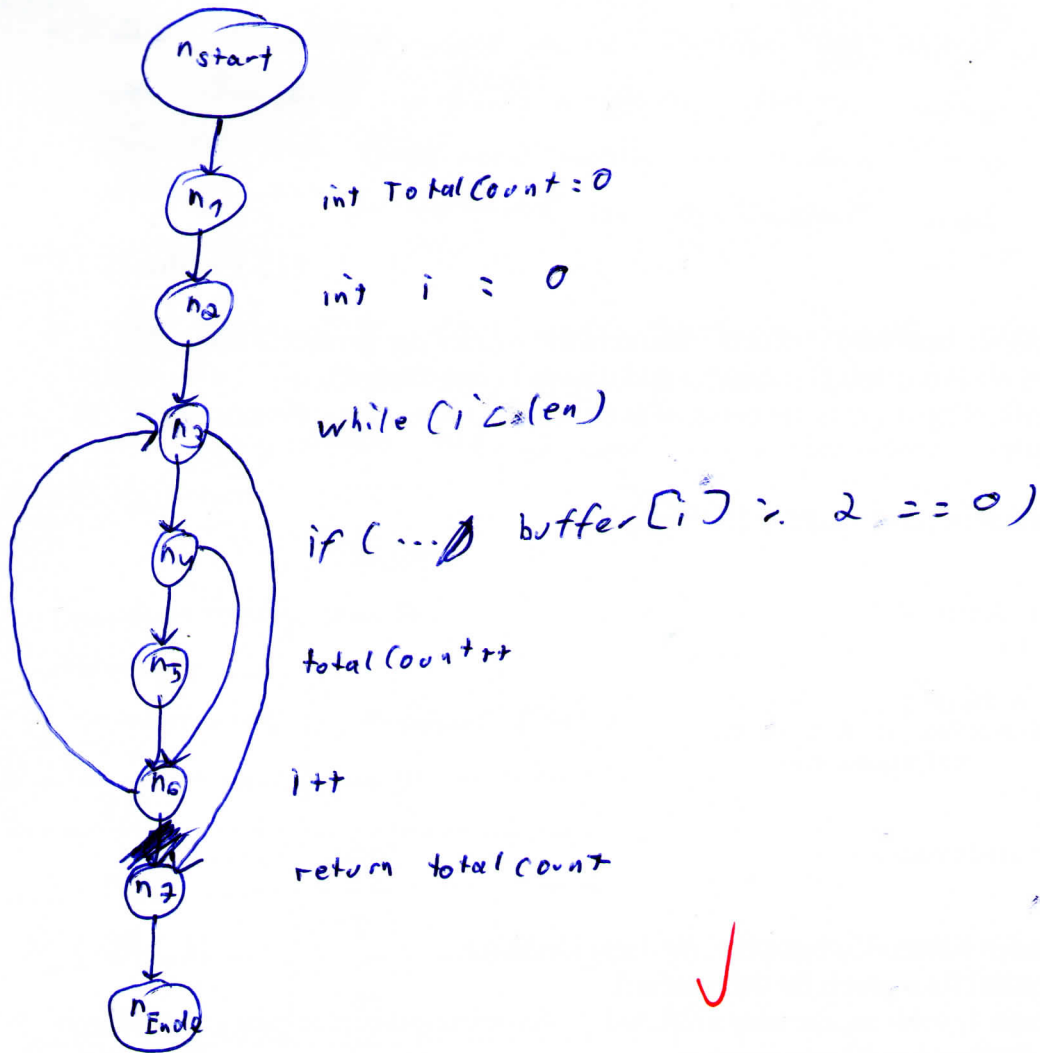 nstart
n1 int TotalCount = 0
n2 int i = 0
n3 while (i < len)
n4 if (... buffer[i] % 2 == 0)
n5 totalCount++
n6 i++
n7 return totalCount
nEnde